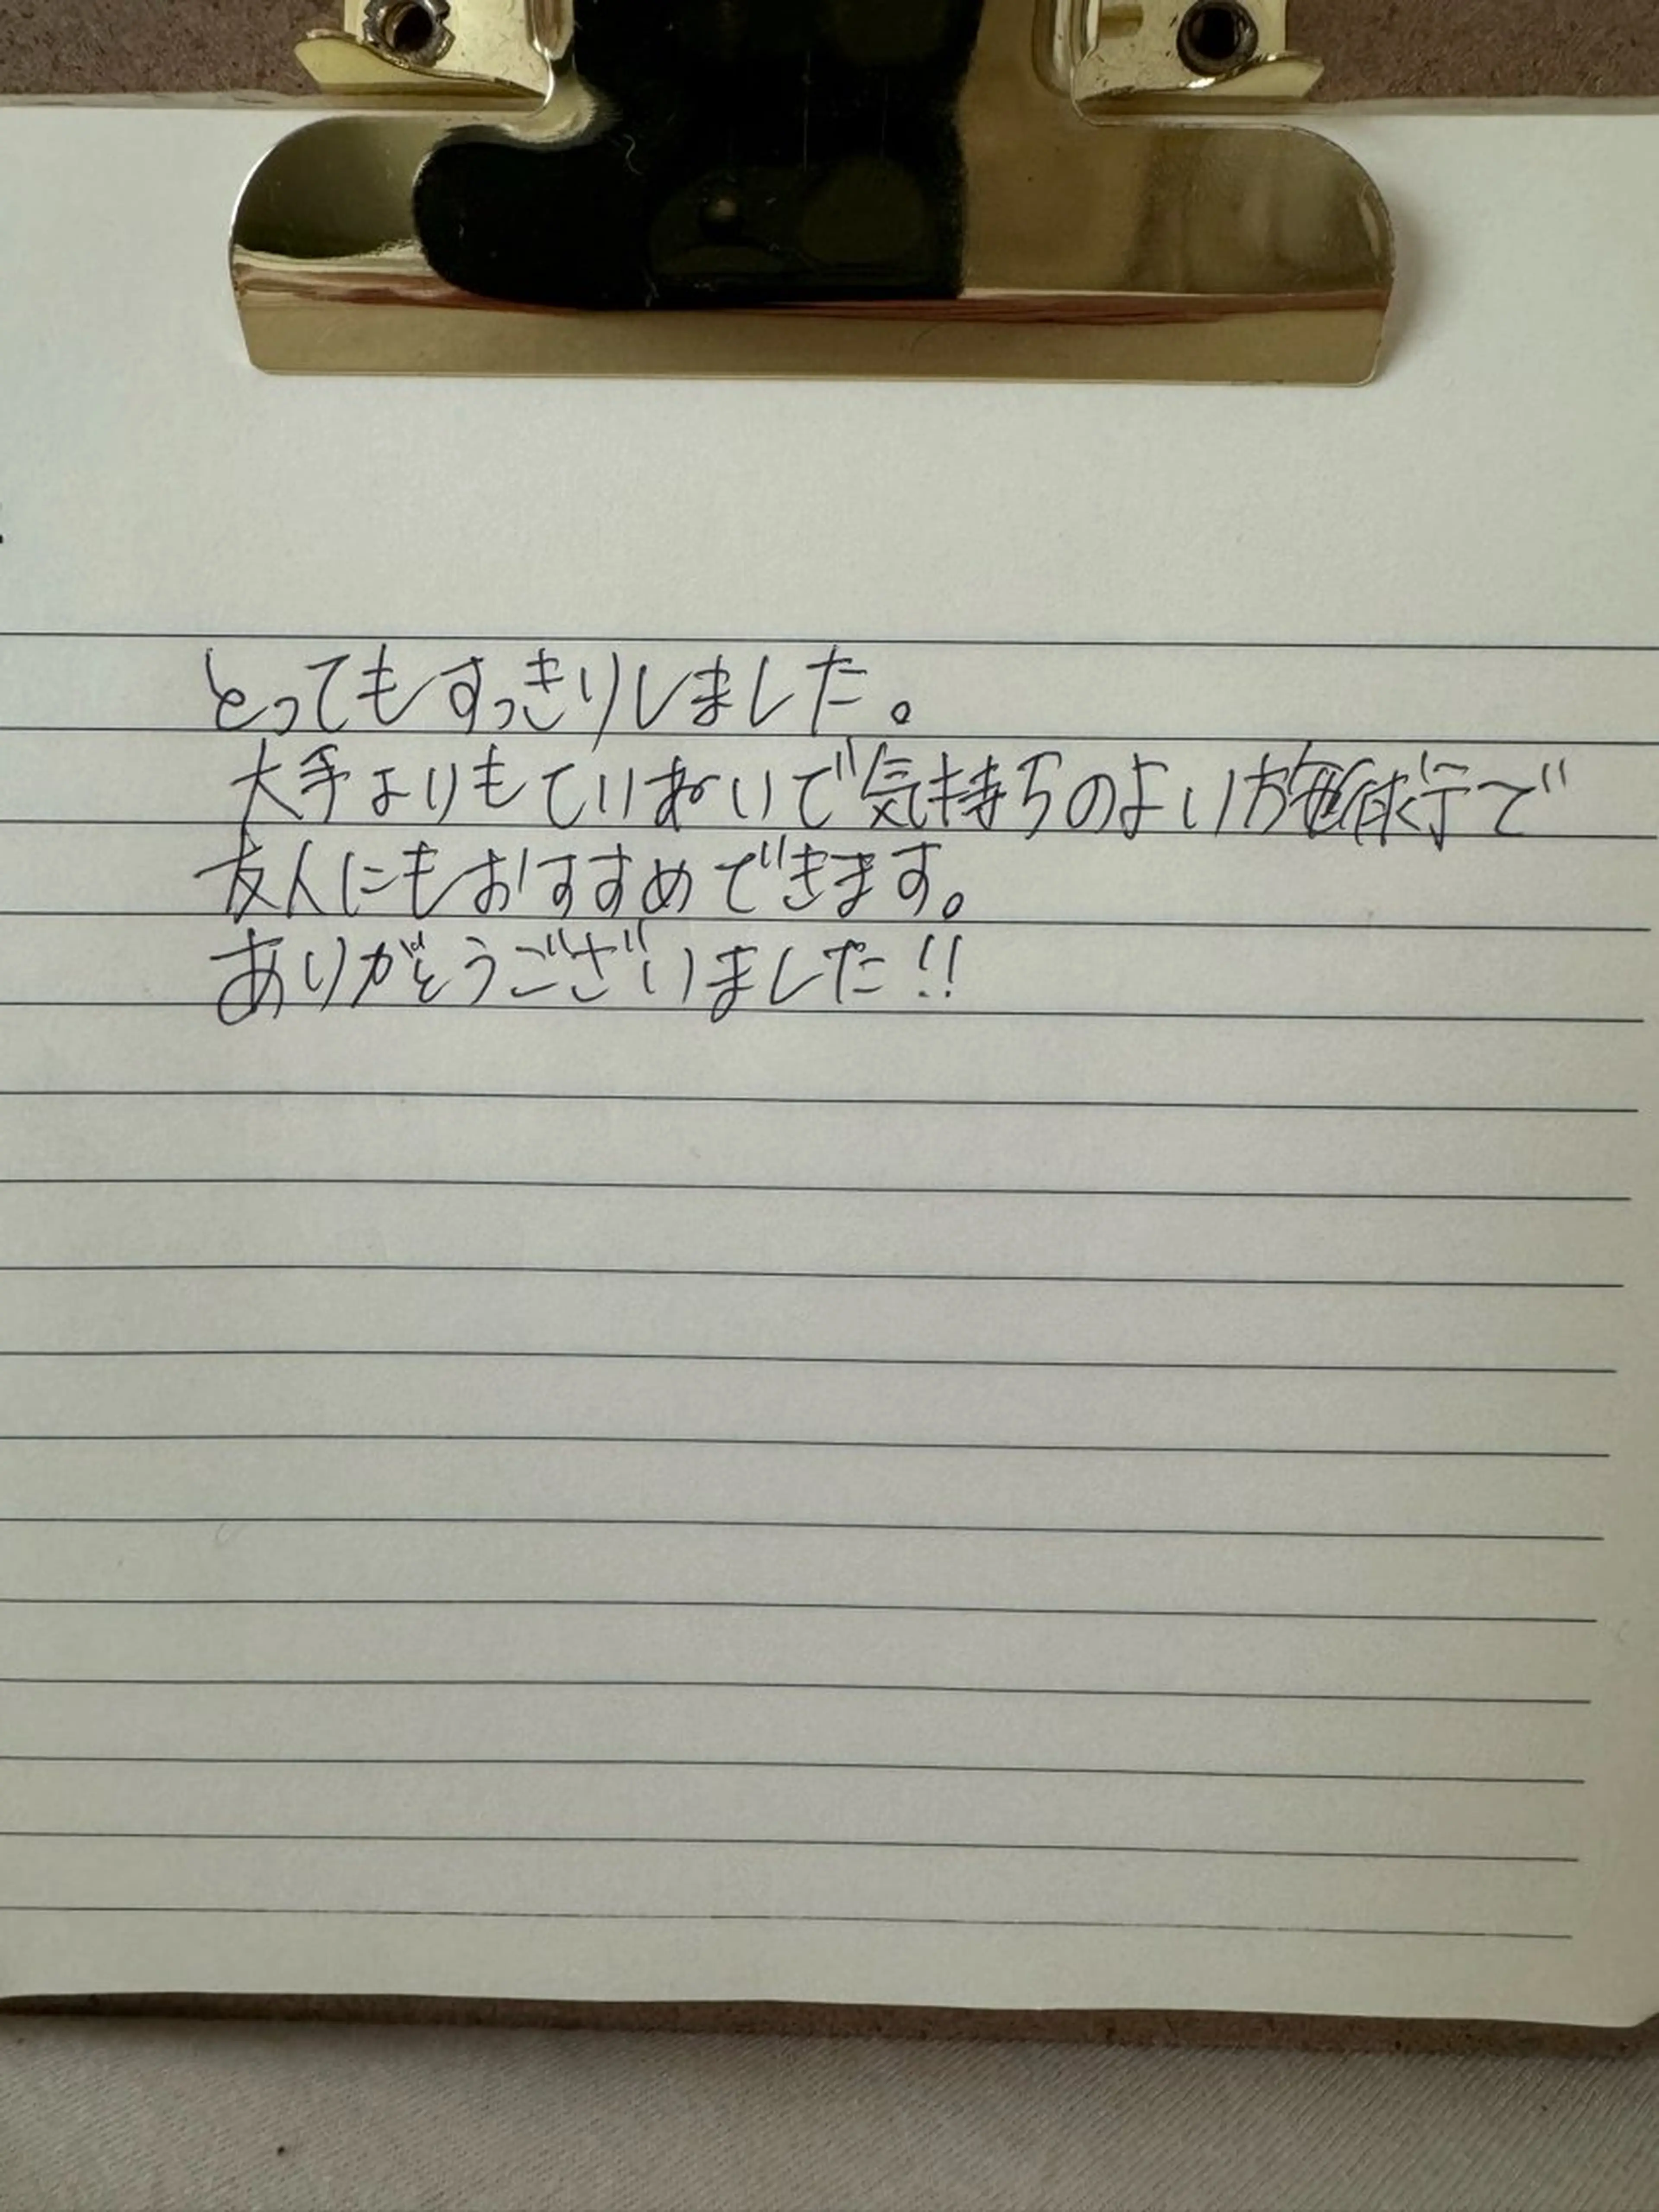 とってもすっきりしました。
大手よりもていねいで気持ちのよい施術で
友人にもおすすめできます。
ありがとうございました!!